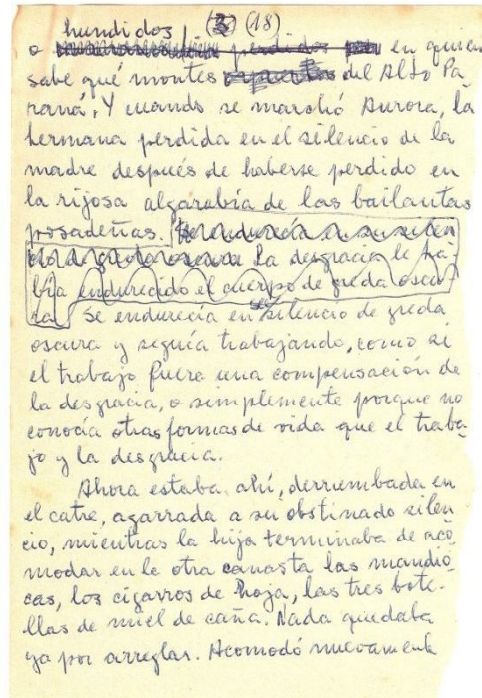 hundidos (3) (18)
o perdidos en quien
sabe qué montes del Alto Pa-
raná. Y cuando se marchó Aurora, la
hermana perdida en el silencio de la
madre después de haberse perdido en
la rijosa algarabía de las bailantas
posadeñas. Se endurecía en su silen
La desgracia le ha-
bía endurecido el cuerpo de greda oscu
ra. Se endurecía en su silencio de greda
oscura y seguía trabajando, como si
el trabajo fuera una compensación de
la desgracia, o simplemente porque no
conocía otras formas de vida que el traba-
jo y la desgracia.
Ahora estaba ahí, derrumbada en
el catre, agarrada a su obstinado silen
cio, mientras la hija terminaba de aco
modar en la otra canasta las mandio
cas, los cigarros de hoja, las tres bote-
llas de miel de caña. Nada quedaba
ya por arreglar. Acomodó nuevamente